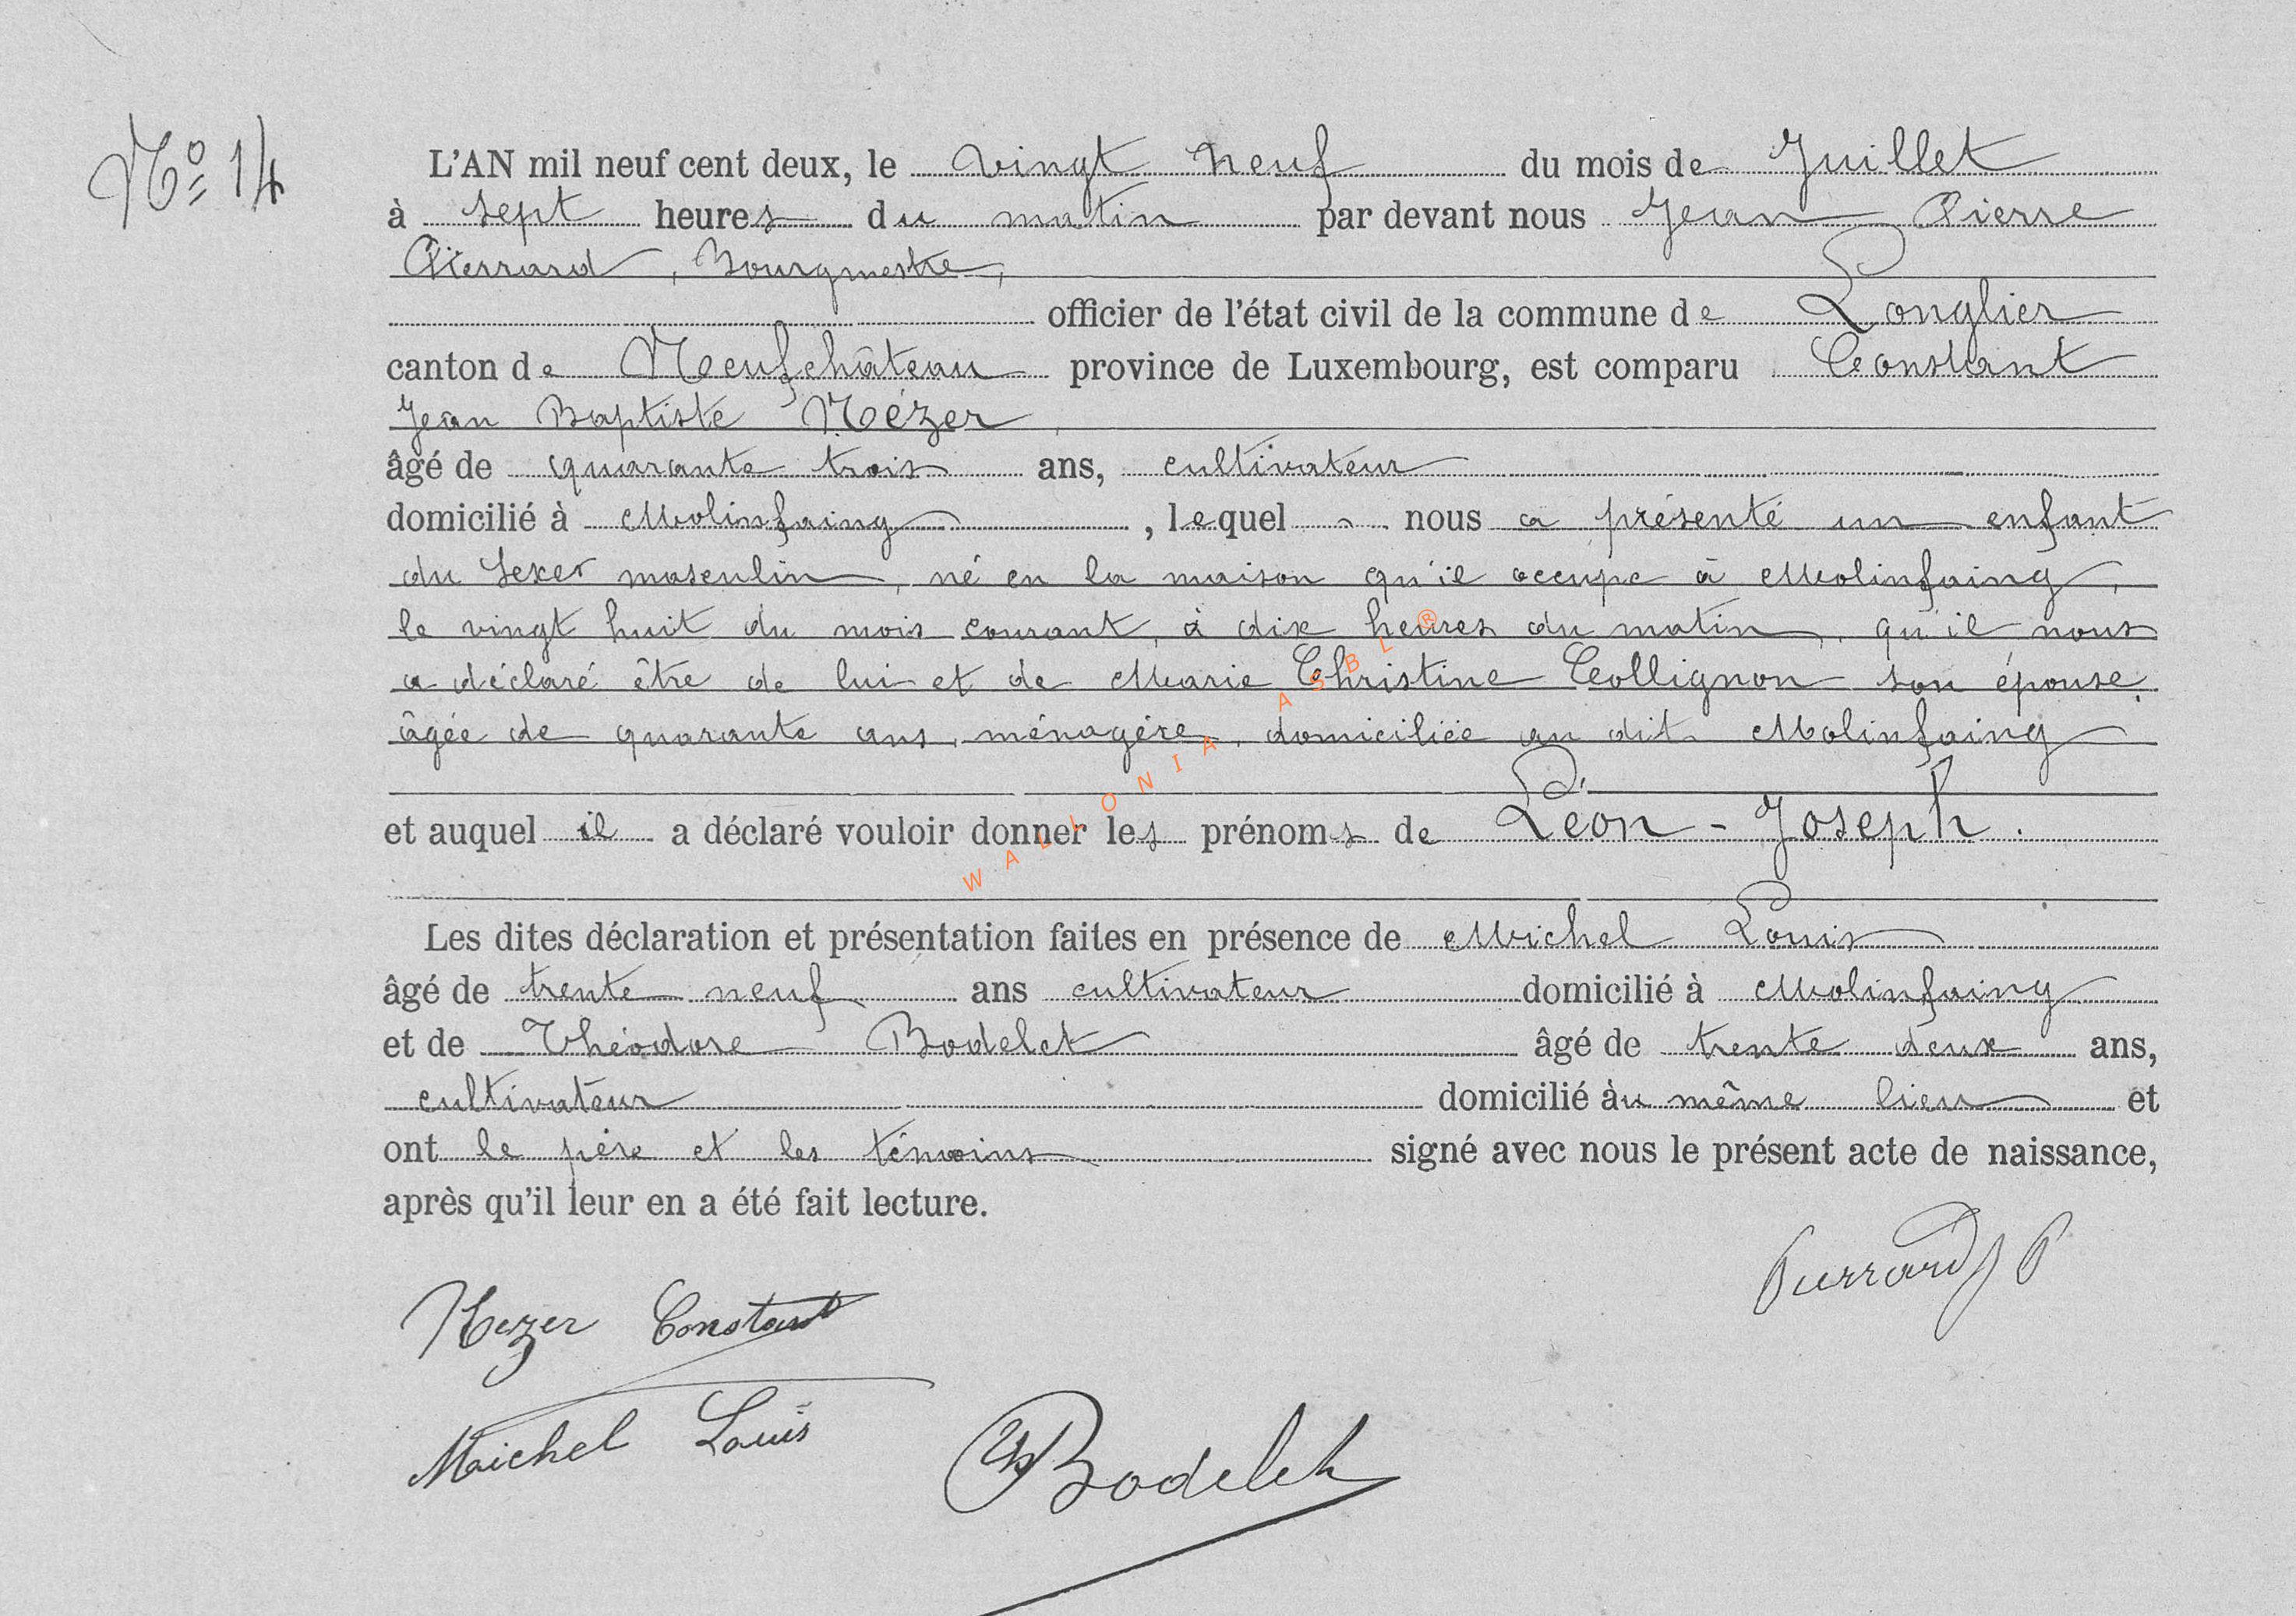 Nº 14
L'AN mil neuf cent deux, le vingt neuf du mois de Juillet
à sept heures du matin par devant nous Jean Pierre
Pierrard, Bourgmestre,
officier de l'état civil de la commune de Longlier
canton de Neufchâteau province de Luxembourg, est comparu Constant
Jean Baptiste Nézer
âgé de quarante trois ans, cultivateur
domicilié à Molinfaing, lequel nous a présenté un enfant
du sexe masculin, né en la maison qu'il occupe à Molinfaing,
le vingt huit du mois courant, à dix heures du matin, qu'il nous
a déclaré être de lui et de Marie Christine Collignon son épouse,
âgée de quarante ans, ménagère, domiciliée au dit Molinfaing
et auquel il a déclaré vouloir donner les prénoms de Léon-Joseph.
Les dites déclaration et présentation faites en présence de Michel Louis
âgé de trente neuf ans cultivateur domicilié à Molinfaing
et de Théodore Bodelet âgé de trente deux ans,
cultivateur domicilié àu même lieu et
ont le père et les témoins signé avec nous le présent acte de naissance,
après qu'il leur en a été fait lecture.
Pierrard J P
Nezer Constant
Michel Louis
Bodelet
WALLONIA ASBL ®